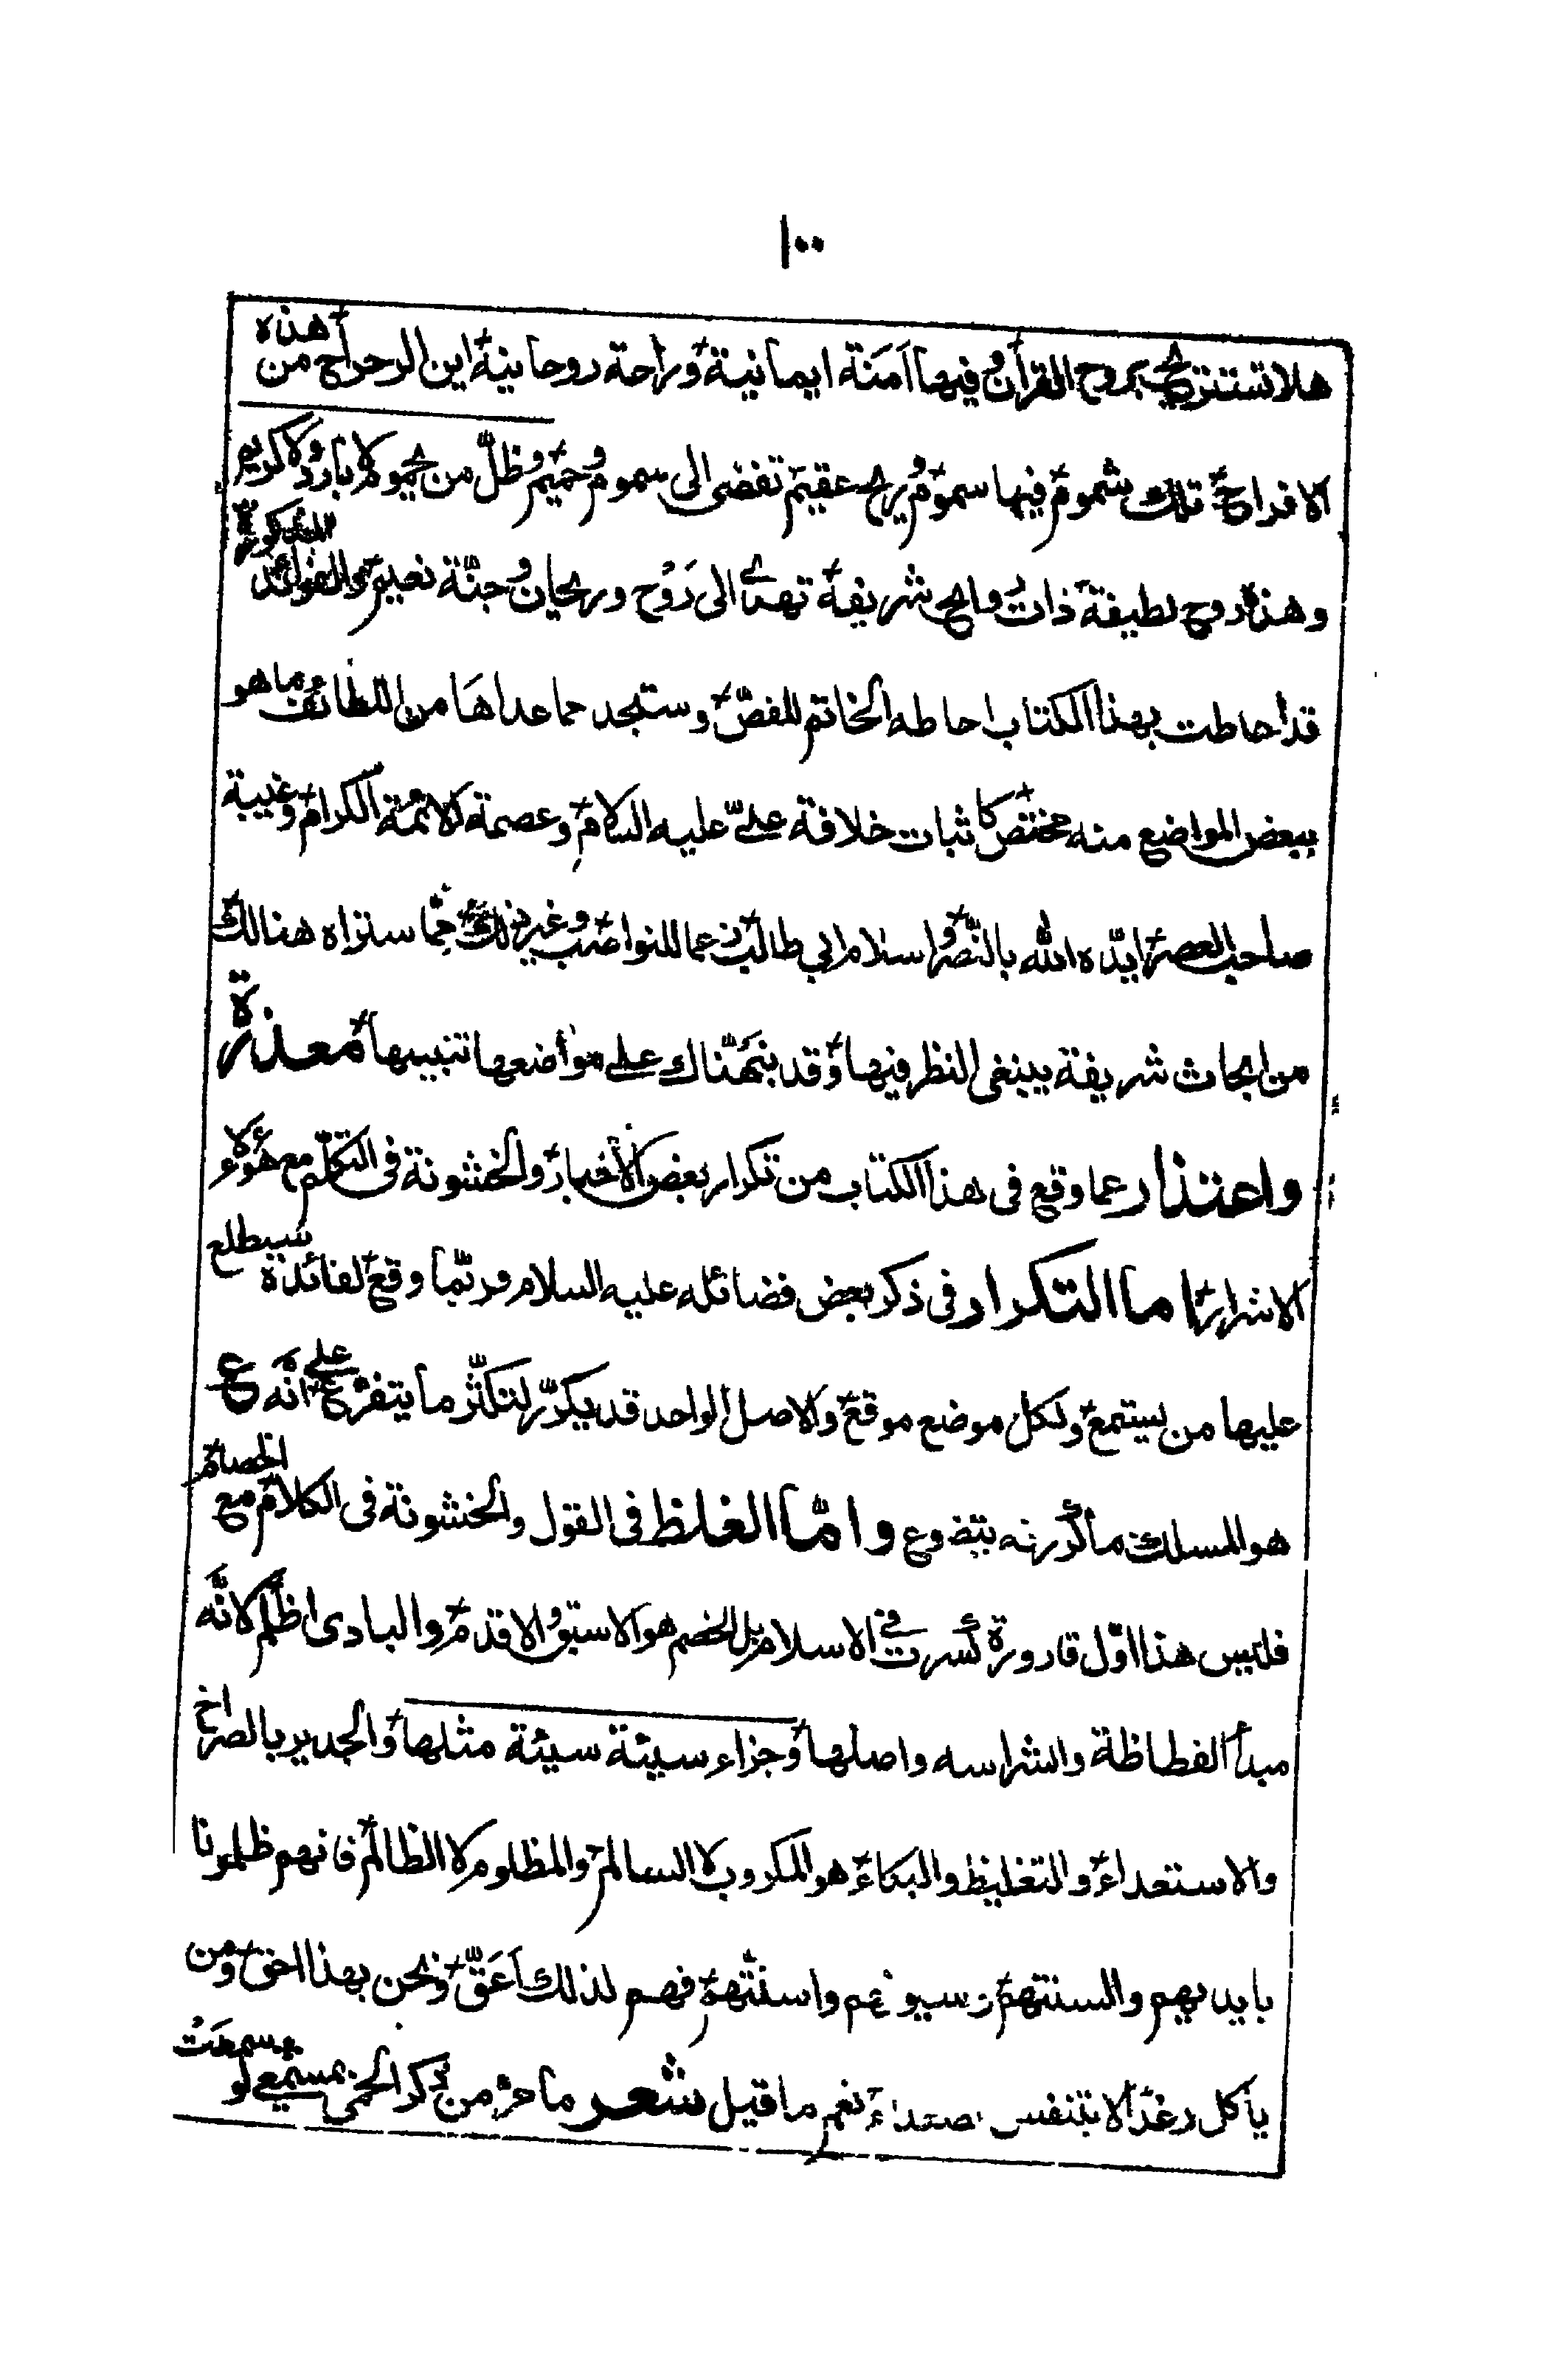 ١٠٠
هلا تستنزيح بروح القرآن وفيها آمَنة ايمانية وراحة روحانية اين الرحراح من أهذه
الاقداح تلك شموم فيها سموم وريح عقيم تفضى الى سموم وحميم وظلّ من يحموم لا بارد ولا كريم
وهذه روح لطيفة ذات روايح شريفة تهدى الى رَوْح وريحان وجنّة نعيم والفوائد المذكورة
قد احاطت بهذا الكتاب احاطه الخاتم للفصّ وستجد ما عداهَا من اللطائف وما هو
ببعض المواضع منه مختص كاثبات خلافة علىّ عليه السلام وعصمة الائمّة الكرام وغيبة
صاحب العصر ايّده الله بالنّصر واسلام ابي طالب زعما للنواصب وغير ذلك ممّا ستراه هنالك
من ابحاث شريفة ينبغى النظر فيها وقد نبّهْناك على مواضعها تنبيها معذرة
واعتذار عما وقع فى هذا الكتاب من تكرار بعض الأخبار والخشونة فى التكلّم مع هؤلاء
الاشرار اما التكرار فى ذكر بعض فضائله عليه السلام فربّما وقع لفائدة سيطلع
عليها من يستمع ولكل موضع موقع والاصل الواحد قد يكرّر لتكثّر ما يتفرّع على انّه ع
هو المسك ما كررته يتضوع وامّا الغلظ فى القول والخشونة فى الكلام مع الخصام
فليس هذا اوّل قارورة كُسرت فى الاسلام بل الخصم هو الاسبق والاقدم والبادى اظلم لانّه
مبدأ الفظاظة والشراسه واصلها وجزاء سيئة سيئة مثلها والجدير بالصراخ
والاستعداء والتغليظ والبكاء هو المكروب لا السالم والمظلوم لا الظالم فانهم ظلمونا
بايديهم والسنتهم وسيوفهم واسنّتهم فهم لذلك اَعَقّ ونحن بهذا احق ومن
يأكل رغدًا لا يتنفس صعداء نعم ما قيل شعر ما مرّ من ذكر الحمى بمسمعى لو سمعَتْ